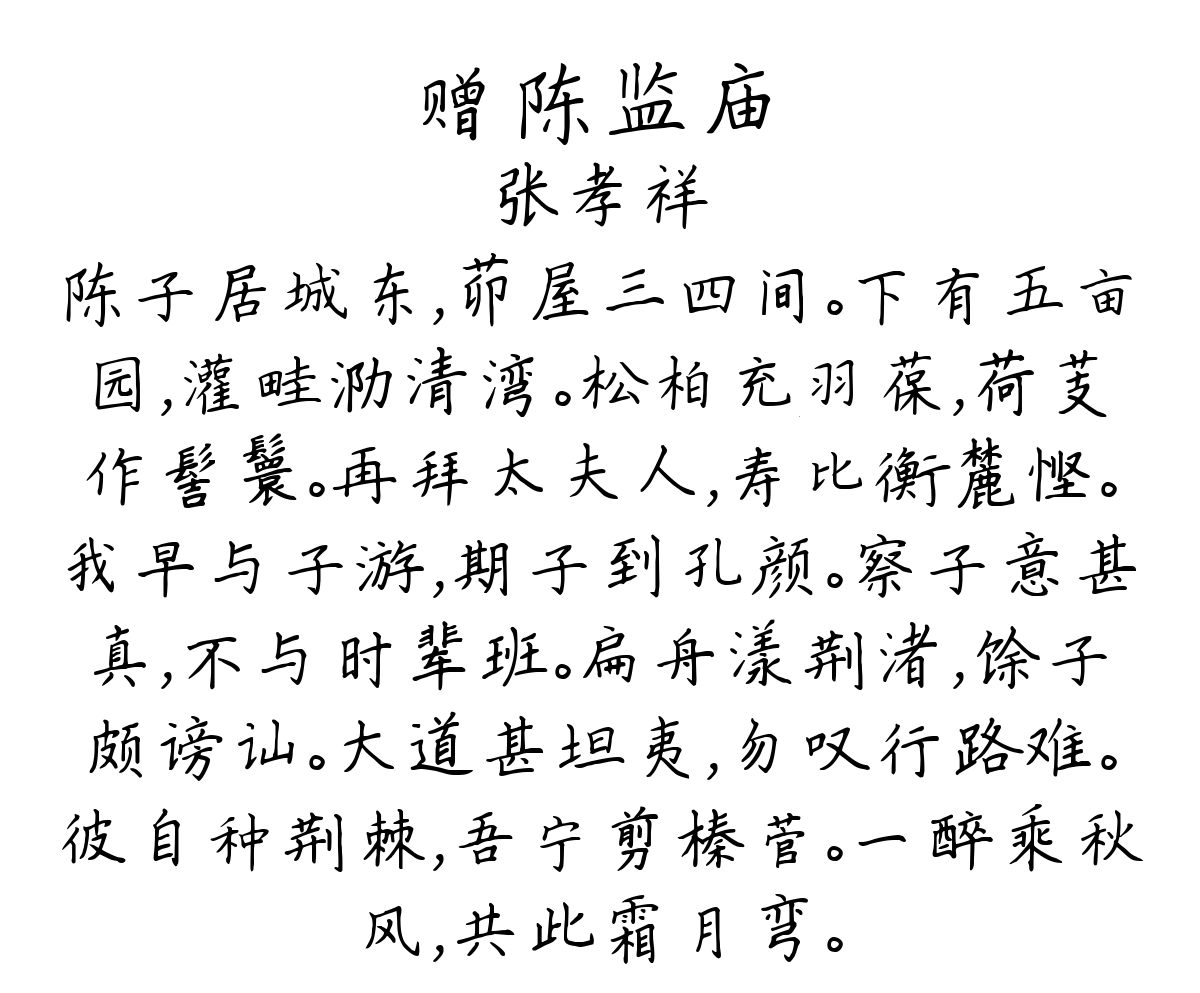 赠陈监庙
张孝祥
陈子居城东,茆屋三四间。下有五亩
园,灌畦泐清湾。松柏充羽葆,荷芰
作髻鬟。再拜太夫人,寿比衡麓悭。
我早与子游,期子到孔颜。察子意甚
真,不与时辈班。扁舟漾荆渚,馀子
颇谤讪。大道甚坦夷,勿叹行路难。
彼自种荆棘,吾宁剪榛菅。一醉乘秋
风,共此霜月弯。